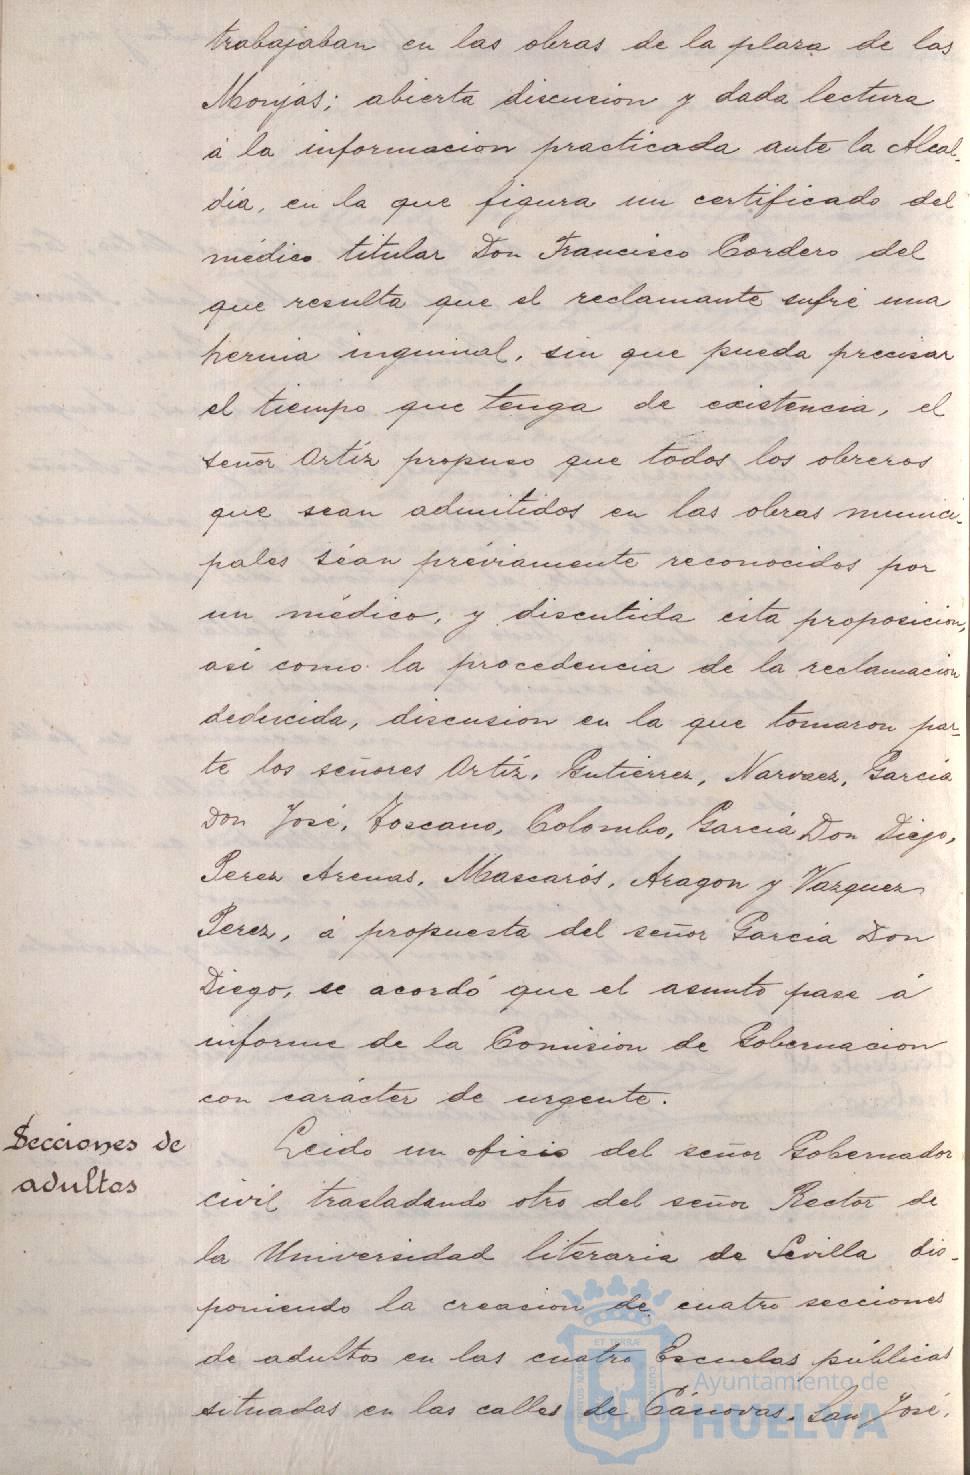 trabajaban en las obras de la plaza de las
Monjas; abierta discusion y dada lectura
á la informacion practicada ante la Alcal-
día, en la que figura un certificado del
médico titular Don Francisco Cordero del
que resulta que el reclamante sufre una
hernia inguinal, sin que pueda precisar
el tiempo que tenga de existencia, el
señor Ortíz propuso que todos los obreros
que sean admitidos en las obras munici-
pales séan préviamente reconocidos por
un médico, y discutida esta proposicion,
asi como la procedencia de la reclamacion
deducida, discusion en la que tomaron par-
te los señores Ortíz, Gutierrez, Narvaez, Garcia
Don José, Toscano, Colombo, Garcia Don Diego,
Perez Arenas, Mascarós, Aragon y Vazquez
Perez, á propuesta del señor Garcia Don
Diego, se acordó que el asunto pase á
informe de la Comision de Gobernacion
con carácter de urgente.
Secciones de
adultos
Leido un oficio del señor Gobernador
civil trasladando otro del señor Rector de
la Universidad literaria de Sevilla dis-
poniendo la creacion de cuatro secciones
de adultos en las cuatro Escuelas públicas
situadas en las calles de Cánovas, San José,
Ayuntamiento de
HUELVA